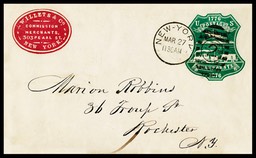 WILLETS & CO
COMMISSION
MERCHANTS,
303 PEARL ST.
NEW YORK.
NEW-YORK
MAR 27
11 30 AM
1776
U S
POSTAGE
1876
Marion Robbins
36 Troup St
Rochester
N.Y